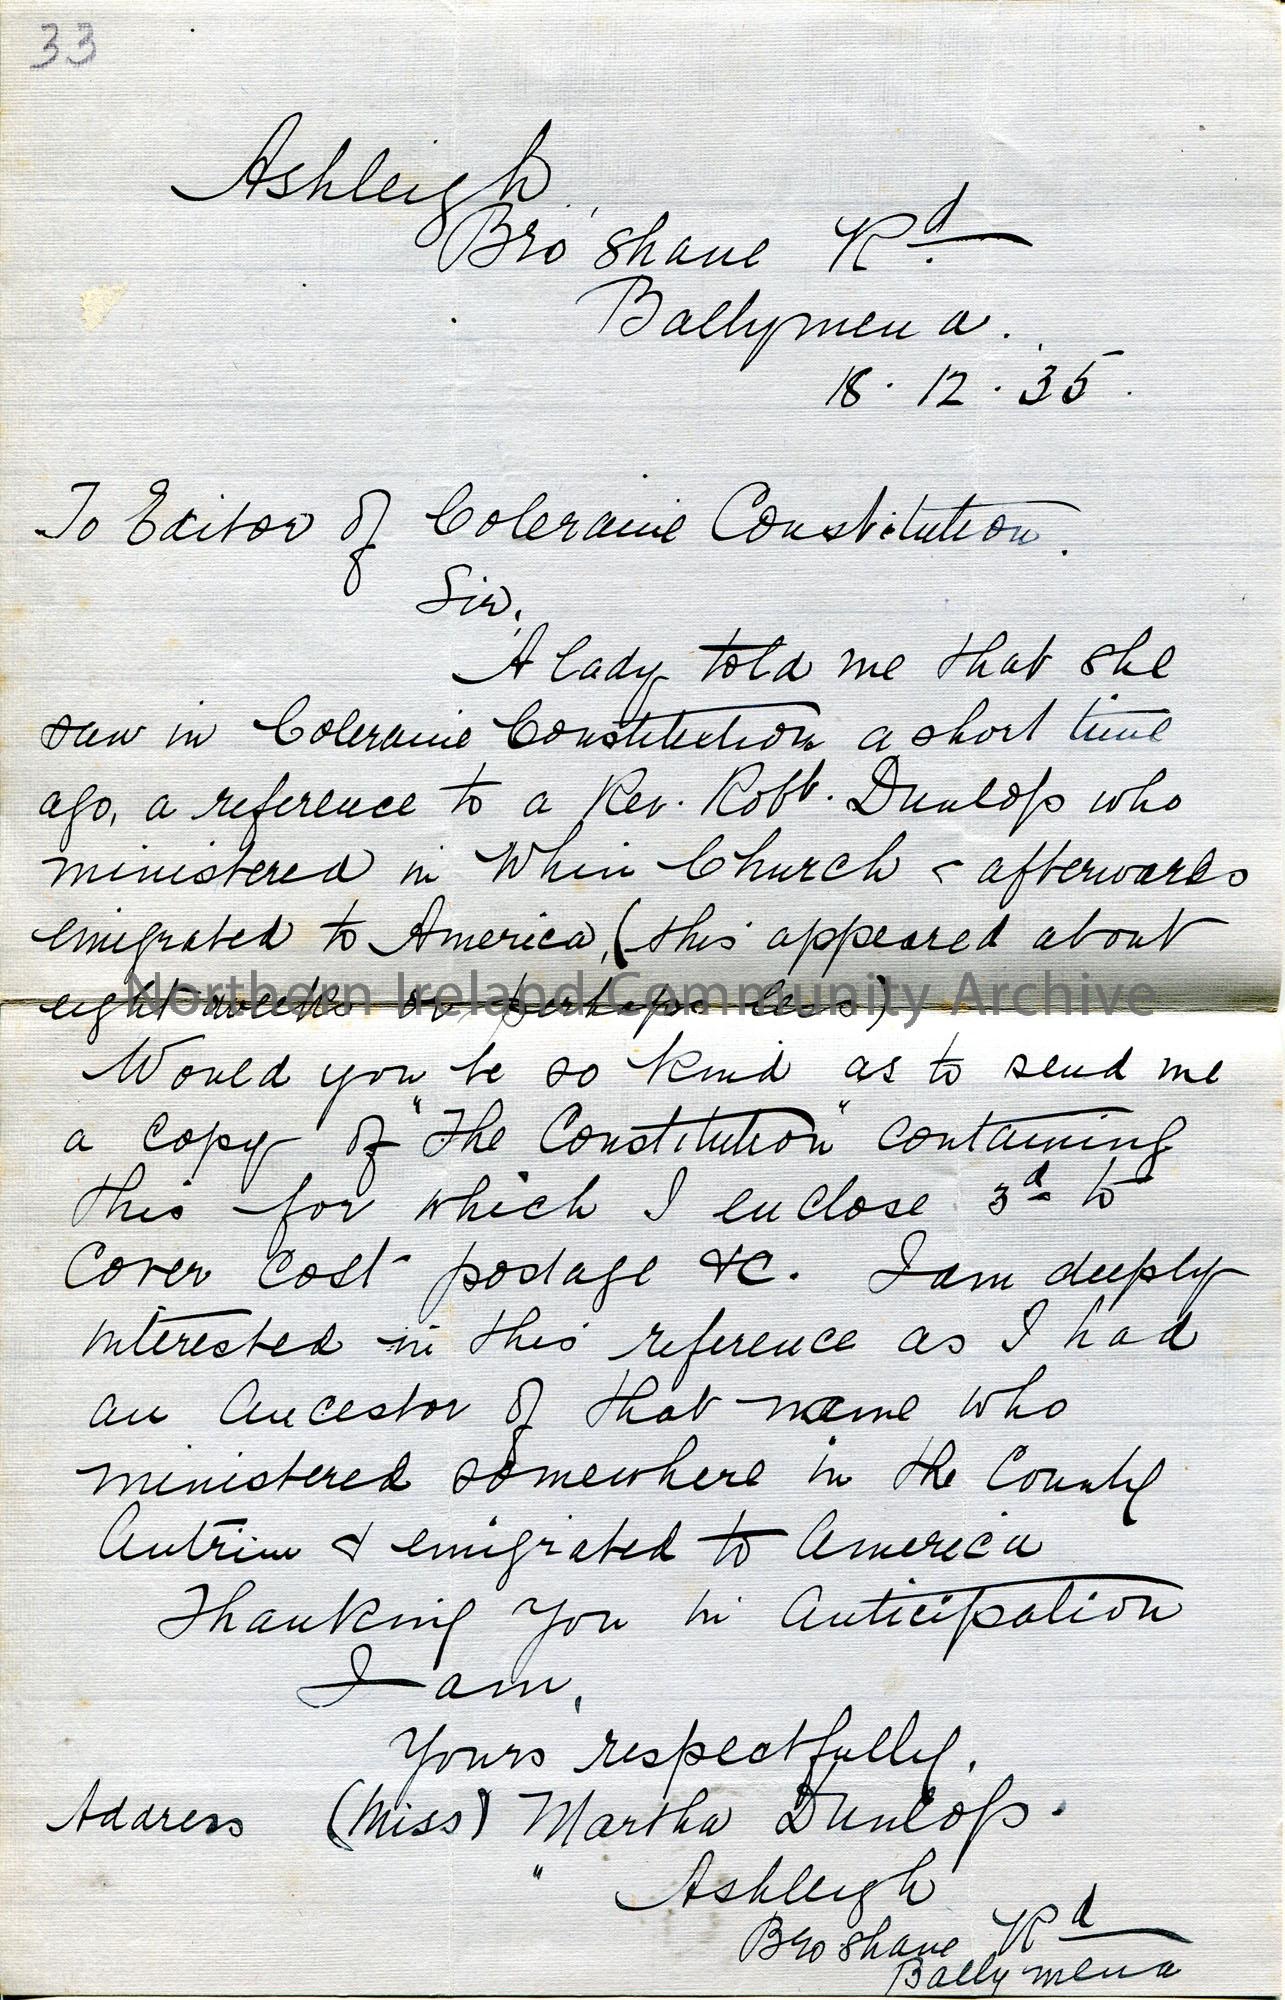 33
Ashleigh
Bro'shane Rd.
Ballymena.
18. 12. 35.
To Editor of Coleraine Constitution.
Sir,
A lady told me that she
saw in Coleraine Constitution a short time
ago, a reference to a Rev. Robt. Dunlop who
ministered in Whin Church & afterwards
emigrated to America, (this appeared about
eight weeks or perhaps less)
Northern Ireland Community Archive
Would you be so kind as to send me
a copy of "The Constitution" containing
this for which I enclose 3d to
cover cost postage &c. I am deeply
interested in this reference as I had
an Ancestor of that name who
ministered somewhere in the County
Antrim & emigrated to America
Thanking You in Anticipation
I am,
Yours respectfully,
Address (Miss) Martha Dunlop.
" Ashleigh
Broshane Rd
Ballymena